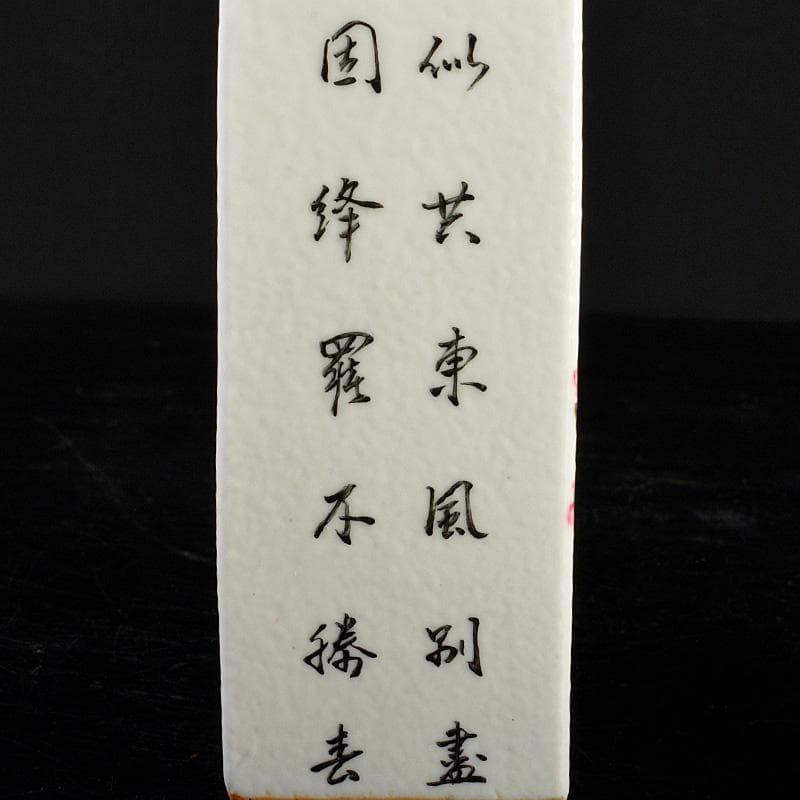 似共東風別盡
因絳羅不勝春